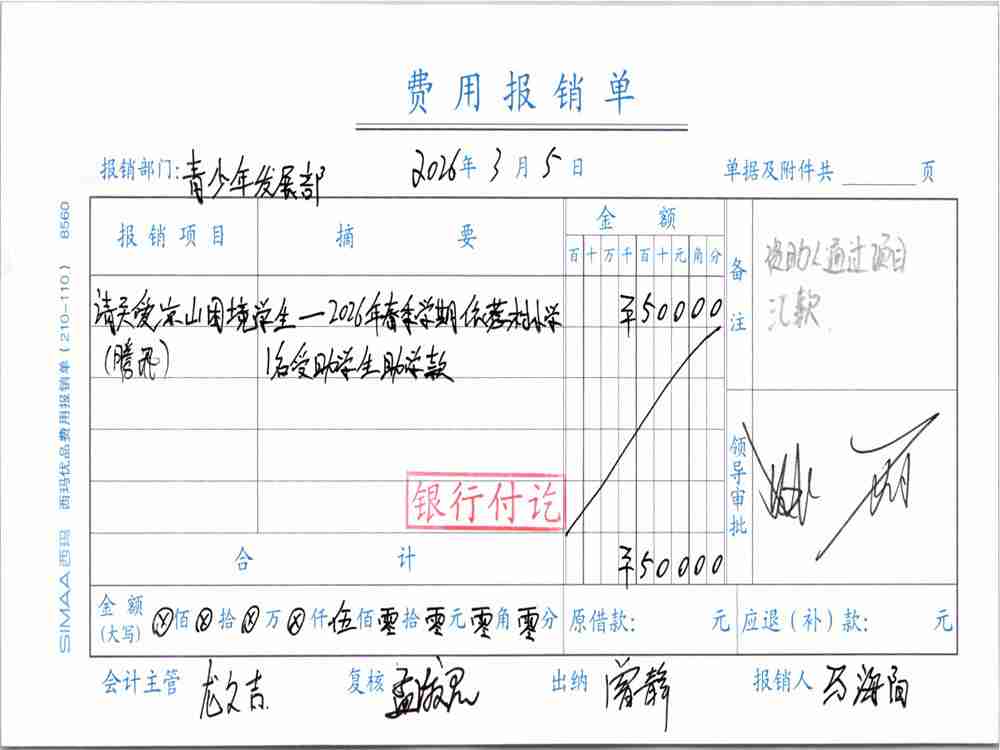 费用报销单
报销部门:青少年发展部 2026年3月5日 单据及附件共 页
报销项目 摘要 金额 备注
百十万千百十元角分
资助人通过项目
汇款
请关爱凉山困境学生—2026年春季学期 ¥50000
(腾讯) 1名受助学生助学款
领导审批
银行付讫
合计 ¥50000
金额(大写) ⊗佰⊗拾⊗万⊗仟伍佰零拾零元零角零分 原借款: 元 应退(补)款: 元
会计主管 龙文吉 复核 出纳 曾静 报销人 马海阳
SIMAA西玛 西玛优品费用报销单(210-110) 8560